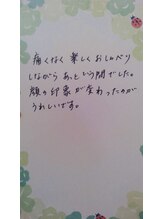 痛くなく楽しくおしゃべり
しながらあっという間でした。
顔の印象が変わったのが
うれしいです。